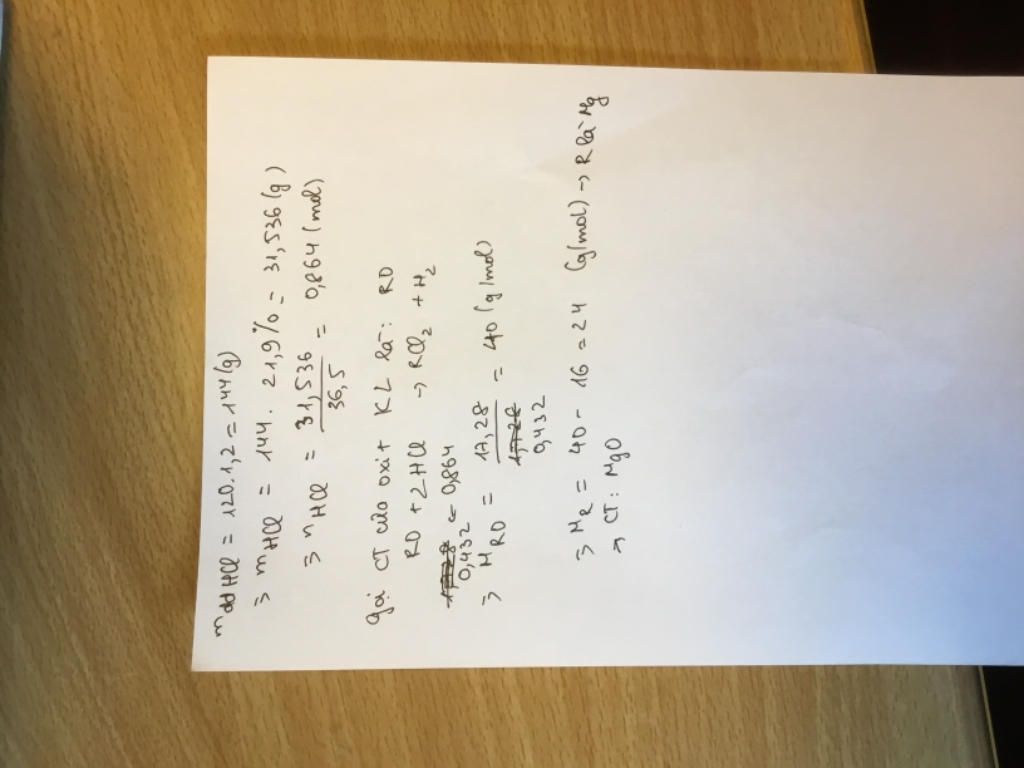 mddHCl = 120.1,2 = 144 (g)
⇒ mHCl = 144. 21,9% = 31,536 (g)
⇒ nHCl = 31,536 / 36,5 = 0,864 (mol)
gọi CT của oxit KL là: RO
RO + 2HCl → RCl2 + H2
0,432 ← 0,864
⇒ MRO = 17,28 / 0,432 = 40 (g/mol)
⇒ MR = 40 - 16 = 24 (g/mol) → R là Mg
→ CT: MgO